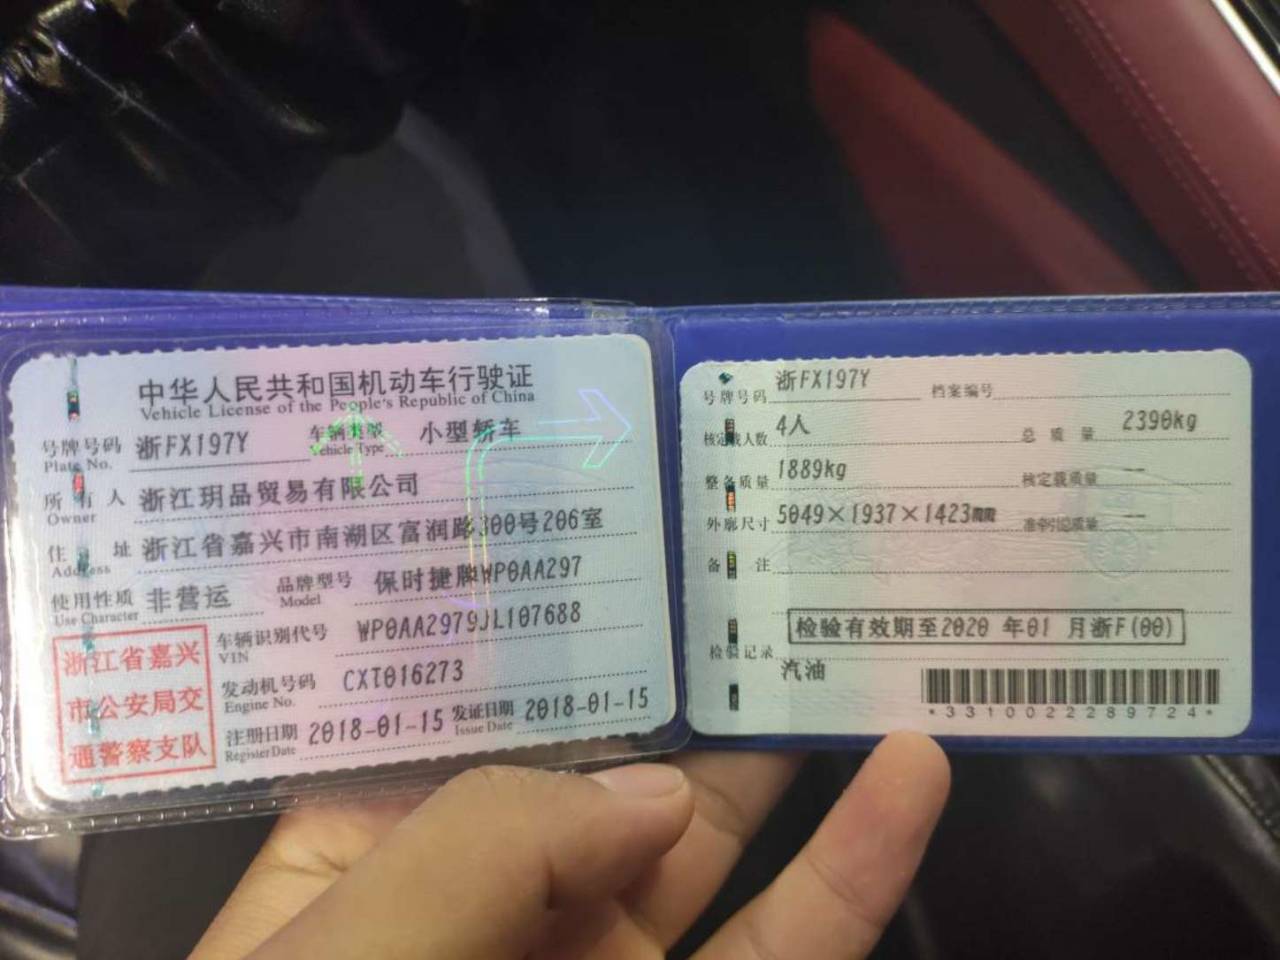 中华人民共和国机动车行驶证
Vehicle License of the People's Republic of China
号牌号码 浙FX197Y 车辆类型 小型轿车
Plate No. Vehicle Type
所有人 浙江玥品贸易有限公司
Owner
住址 浙江省嘉兴市南湖区富润路300号206室
Address
使用性质 非营运 品牌型号 保时捷牌WP0AA297
Use Character Model
车辆识别代号 WP0AA2979JL107688
VIN
发动机号码 CXT016273
Engine No.
注册日期 2018-01-15 发证日期 2018-01-15
Register Date Issue Date
浙江省嘉兴
市公安局交
通警察支队
号牌号码 浙FX197Y 档案编号
核定载人数 4人 总质量 2390kg
整备质量 1889kg 核定载质量 --
外廓尺寸 5049×1937×1423mm 准牵引总质量 --
备注
检验有效期至2020 年01 月浙F(00)
检验记录
汽油
*3310022289724*